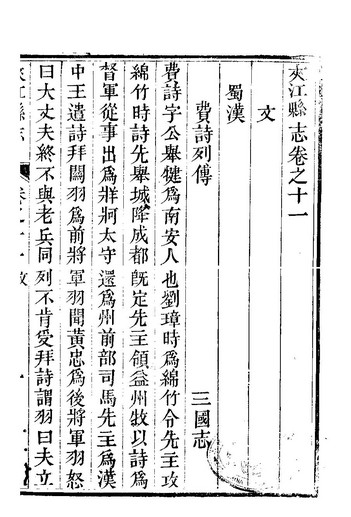 夾江縣志卷之十一
文
蜀漢
費詩列傳 三國志
費詩字公舉犍爲南安人也劉璋時爲綿竹令先主攻
綿竹時詩先舉城降成都既定先主領益州牧以詩爲
督軍從事出爲牂牁太守還爲州前部司馬先主爲漢
中王遣詩拜關羽爲前將軍羽聞黃忠爲後將軍羽怒
曰大丈夫終不與老兵同列不肯受拜詩謂羽曰夫立
夾江縣志 卷之十一 文 一